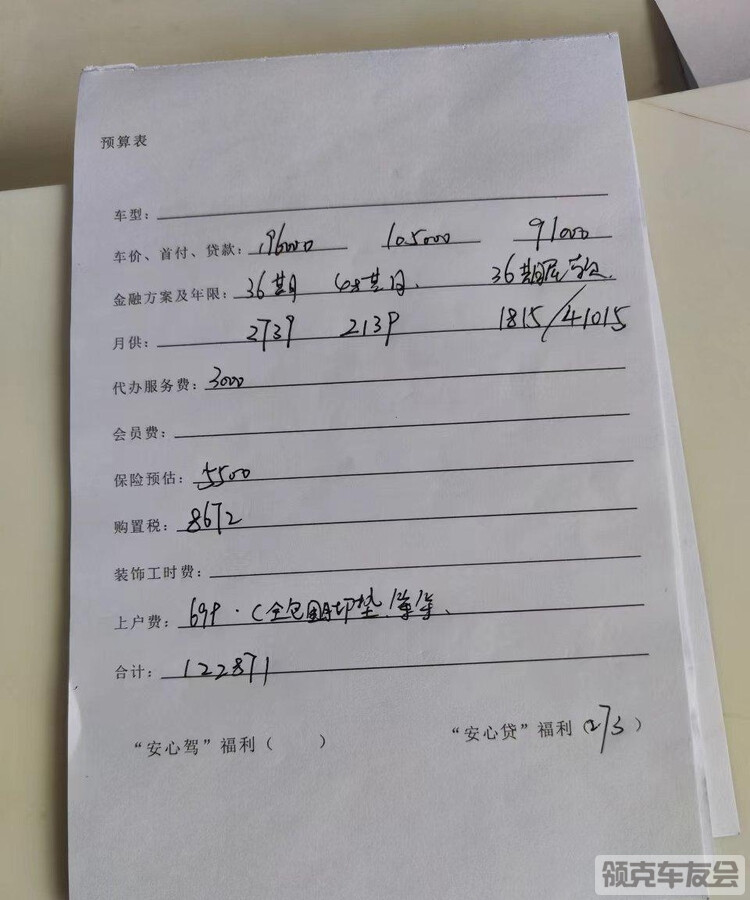 预算表
车型：
车价、首付、贷款：196000 105000 91000
金融方案及年限：36期 48期 36期
月供：2739 2139 1815/41015
代办服务费：3000
会员费：
保险预估：5500
购置税：8672
装饰工时费：
上户费：699.（全包围脚垫等等、
合计：122871
“安心驾”福利（ ） “安心贷”福利（2/3）
领克车友会